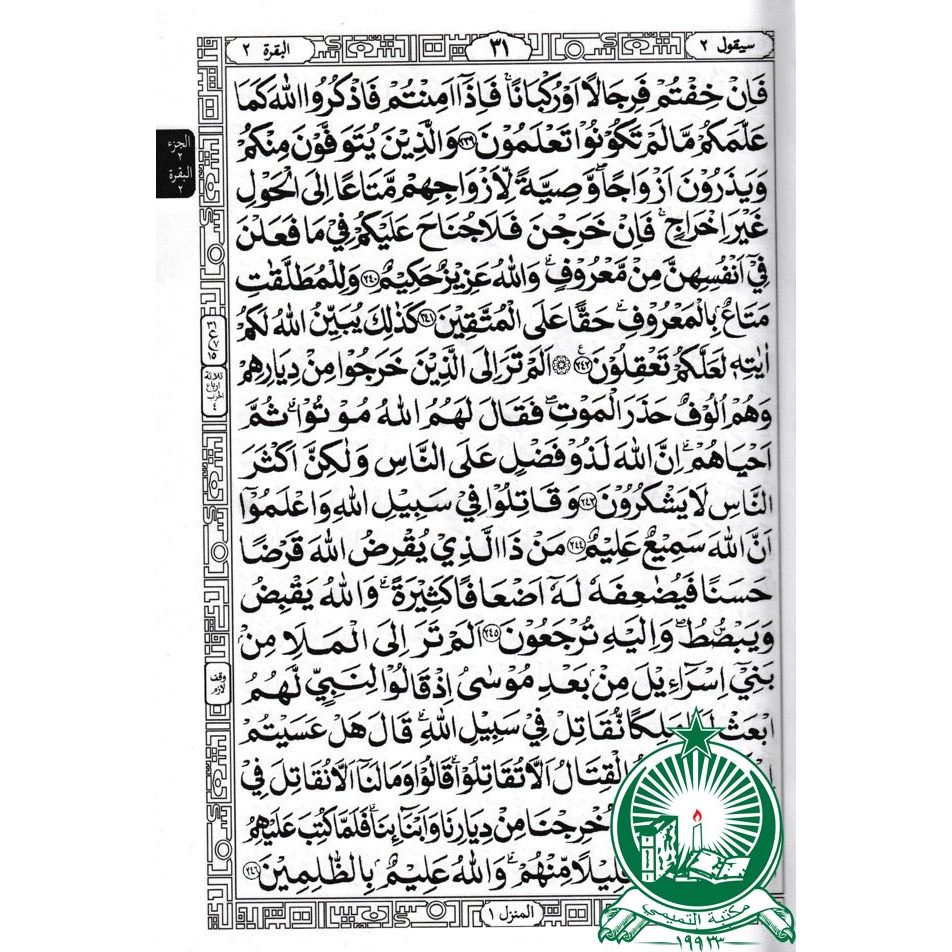 سيقول ٢
٣١
البقرة ٢
فَاِنْ خِفْتُمْ فَرِجَالًا اَوْ رُكْبَانًا ۚ فَاِذَآ اَمِنْتُمْ فَاذْكُرُوا اللّٰهَ كَمَا
عَلَّمَكُمْ مَّا لَمْ تَكُوْنُوْا تَعْلَمُوْنَ ٢٣٩ وَالَّذِيْنَ يُتَوَفَّوْنَ مِنْكُمْ
وَيَذَرُوْنَ اَزْوَاجًا ۖ وَّصِيَّةً لِّاَزْوَاجِهِمْ مَّتَاعًا اِلَى الْحَوْلِ
غَيْرَ اِخْرَاجٍ ۚ فَاِنْ خَرَجْنَ فَلَا جُنَاحَ عَلَيْكُمْ فِيْ مَا فَعَلْنَ
فِيْٓ اَنْفُسِهِنَّ مِنْ مَّعْرُوْفٍ ۗ وَاللّٰهُ عَزِيْزٌ حَكِيْمٌ ٢٤٠ وَلِلْمُطَلَّقٰتِ
مَتَاعٌۢ بِالْمَعْرُوْفِ ۗ حَقًّا عَلَى الْمُتَّقِيْنَ ٢٤١ كَذٰلِكَ يُبَيِّنُ اللّٰهُ لَكُمْ
اٰيٰتِهٖ لَعَلَّكُمْ تَعْقِلُوْنَ ٢٤٢ اَلَمْ تَرَ اِلَى الَّذِيْنَ خَرَجُوْا مِنْ دِيَارِهِمْ
وَهُمْ اُلُوْفٌ حَذَرَ الْمَوْتِ ۖ فَقَالَ لَهُمُ اللّٰهُ مُوْتُوْا ۗ ثُمَّ
اَحْيَاهُمْ ۗ اِنَّ اللّٰهَ لَذُوْ فَضْلٍ عَلَى النَّاسِ وَلٰكِنَّ اَكْثَرَ
النَّاسِ لَا يَشْكُرُوْنَ ٢٤٣ وَقَاتِلُوْا فِيْ سَبِيْلِ اللّٰهِ وَاعْلَمُوْٓا
اَنَّ اللّٰهَ سَمِيْعٌ عَلِيْمٌ ٢٤٤ مَنْ ذَا الَّذِيْ يُقْرِضُ اللّٰهَ قَرْضًا
حَسَنًا فَيُضٰعِفَهٗ لَهٗٓ اَضْعَافًا كَثِيْرَةً ۗ وَاللّٰهُ يَقْبِضُ
وَيَبْصُۜطُ ۖ وَاِلَيْهِ تُرْجَعُوْنَ ٢٤٥ اَلَمْ تَرَ اِلَى الْمَلَاِ مِنْۢ
بَنِيْٓ اِسْرَآءِيْلَ مِنْۢ بَعْدِ مُوْسٰى اِذْ قَالُوْا لِنَبِيٍّ لَّهُمُ
ابْعَثْ مَلِكًا نُّقَاتِلْ فِيْ سَبِيْلِ اللّٰهِ ۗ قَالَ هَلْ عَسَيْتُمْ
الْقِتَالُ اَلَّا تُقَاتِلُوْا ۗ قَالُوْا وَمَا لَنَآ اَلَّا نُقَاتِلَ فِيْ
اُخْرِجْنَا مِنْ دِيَارِنَا وَاَبْنَآئِنَا ۗ فَلَمَّا كُتِبَ عَلَيْهِمُ
قَلِيْلًا مِّنْهُمْ ۗ وَاللّٰهُ عَلِيْمٌۢ بِالظّٰلِمِيْنَ ٢٤٦
المنزل ١
الجزء
٢
البقرة
٢
ثلاثة
ارباع
الحزب
٤
وقف
لازم
مكتبة التميمي
١٩٩٣٣